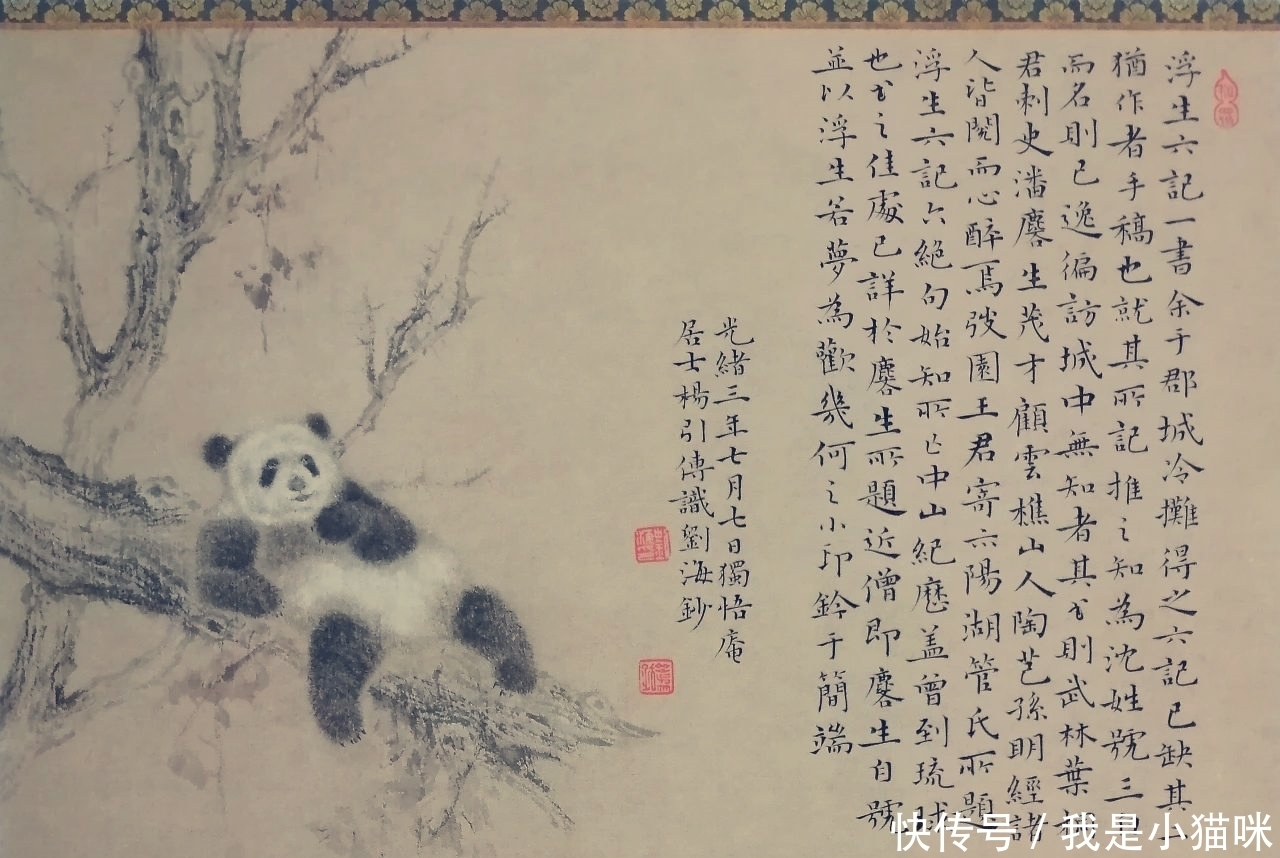 浮生六記一書余于郡城冷攤得之六記已缺其二
猶作者手稿也就其所記推之知為沈姓號三白
而名則已逸徧訪城中無知者其書則武林葉
君刺史潘麐生茂才顧雲樵山人陶芑孫明經諸
人皆閱而心醉焉弢園王君寄示陽湖管氏所題
浮生六記六絕句始知所亡中山紀歷盖曾到琉球
也書之佳處已詳於麐生所題近僧即麐生自號
並以浮生若夢為歡幾何之小印鈐于簡端
光緒三年七月七日獨悟庵
居士楊引傳識劉海鈔
快传号 / 我是小猫咪